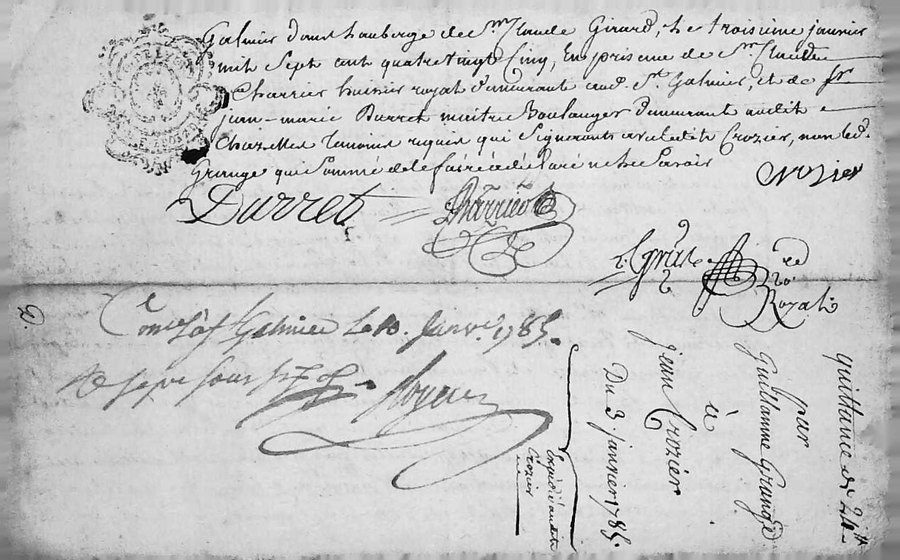 Galmier dans l'auberge de Sr. Claude Girard, Le troisieme janvier
mil Sept cent quatre vingt Cinq, En presence de Sr. Claude
Charrier huissier royal demeurant aud. St. Galmier, et de Sr
jean-marie Durret maitre Boulanger demeurant audit
Chazelles temoins requis qui Signeront avec ledit Crozier, non led.
Grange qui Sommé de le faire a declaré ne le Savoir
Crozier
Durret
Charrier
Royal
à St Galmier Le 10. Janvr. 1785.
sous
quittance de 24tt
par
Guillaume Grange
à
jean Crozier
Du 3 janvier 1785.
Expedié audit
Crozier